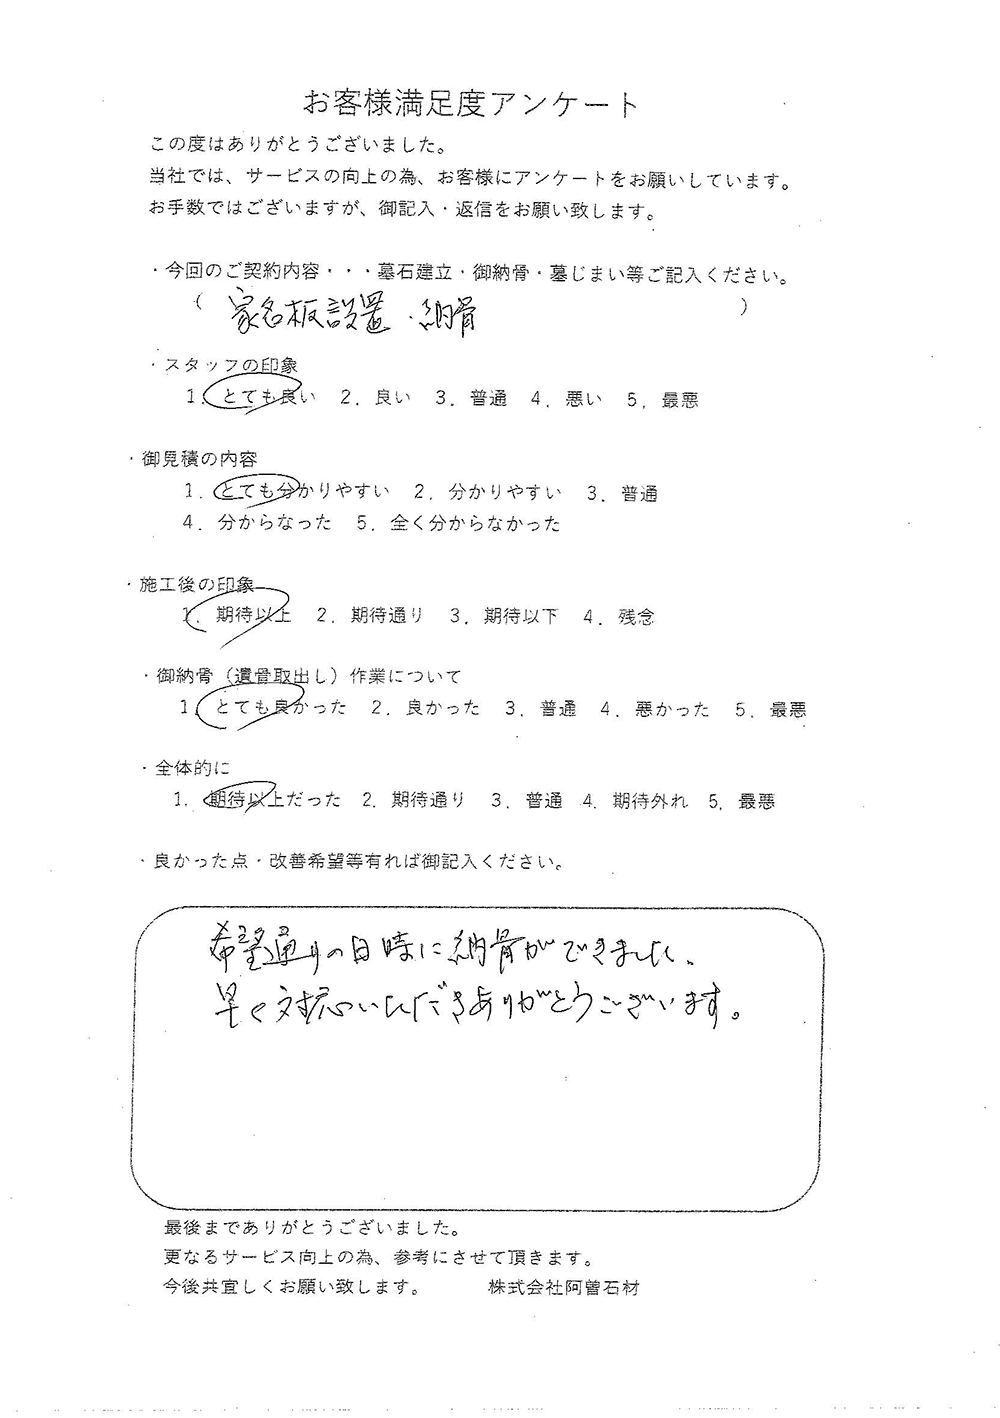 お客様満足度アンケート
この度はありがとうございました。
当社では、サービスの向上の為、お客様にアンケートをお願いしています。
お手数ではございますが、御記入・返信をお願い致します。
・今回のご契約内容・・・墓石建立・御納骨・墓じまい等ご記入ください。
( 家名板設置・納骨 )
・スタッフの印象
1. とても良い 2. 良い 3. 普通 4. 悪い 5. 最悪
・御見積の内容
1. とても分かりやすい 2. 分かりやすい 3. 普通
4. 分からなった 5. 全く分からなかった
・施工後の印象
1. 期待以上 2. 期待通り 3. 期待以下 4. 残念
・御納骨（遺骨取出し）作業について
1. とても良かった 2. 良かった 3. 普通 4. 悪かった 5. 最悪
・全体的に
1. 期待以上だった 2. 期待通り 3. 普通 4. 期待外れ 5. 最悪
・良かった点・改善希望等有れば御記入ください。
希望通りの日時に納骨ができました、
早く対応いただきありがとうございます。
最後までありがとうございました。
更なるサービス向上の為、参考にさせて頂きます。
今後共宜しくお願い致します。 株式会社阿曽石材